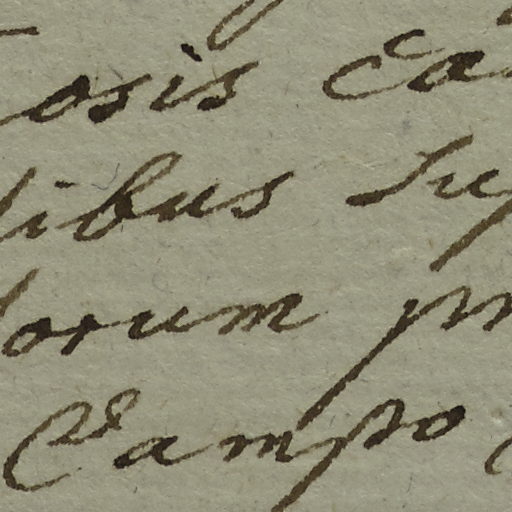 osis Ca
libus Su
lorum pr
Campo